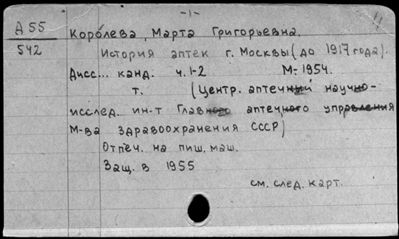 -1-
11
А 55
542
Королева, Марта Григорьевна.
История аптек г. Москвы (до 1917 года).
Дисс... канд. ч. 1-2 М- 1954.
т. (Центр. аптечный научно-
исслед. ин-т Главного аптечного управления
М-ва здравоохранения СССР)
Отпеч. на пиш. маш.
Защ. в 1955
см. след. карт.